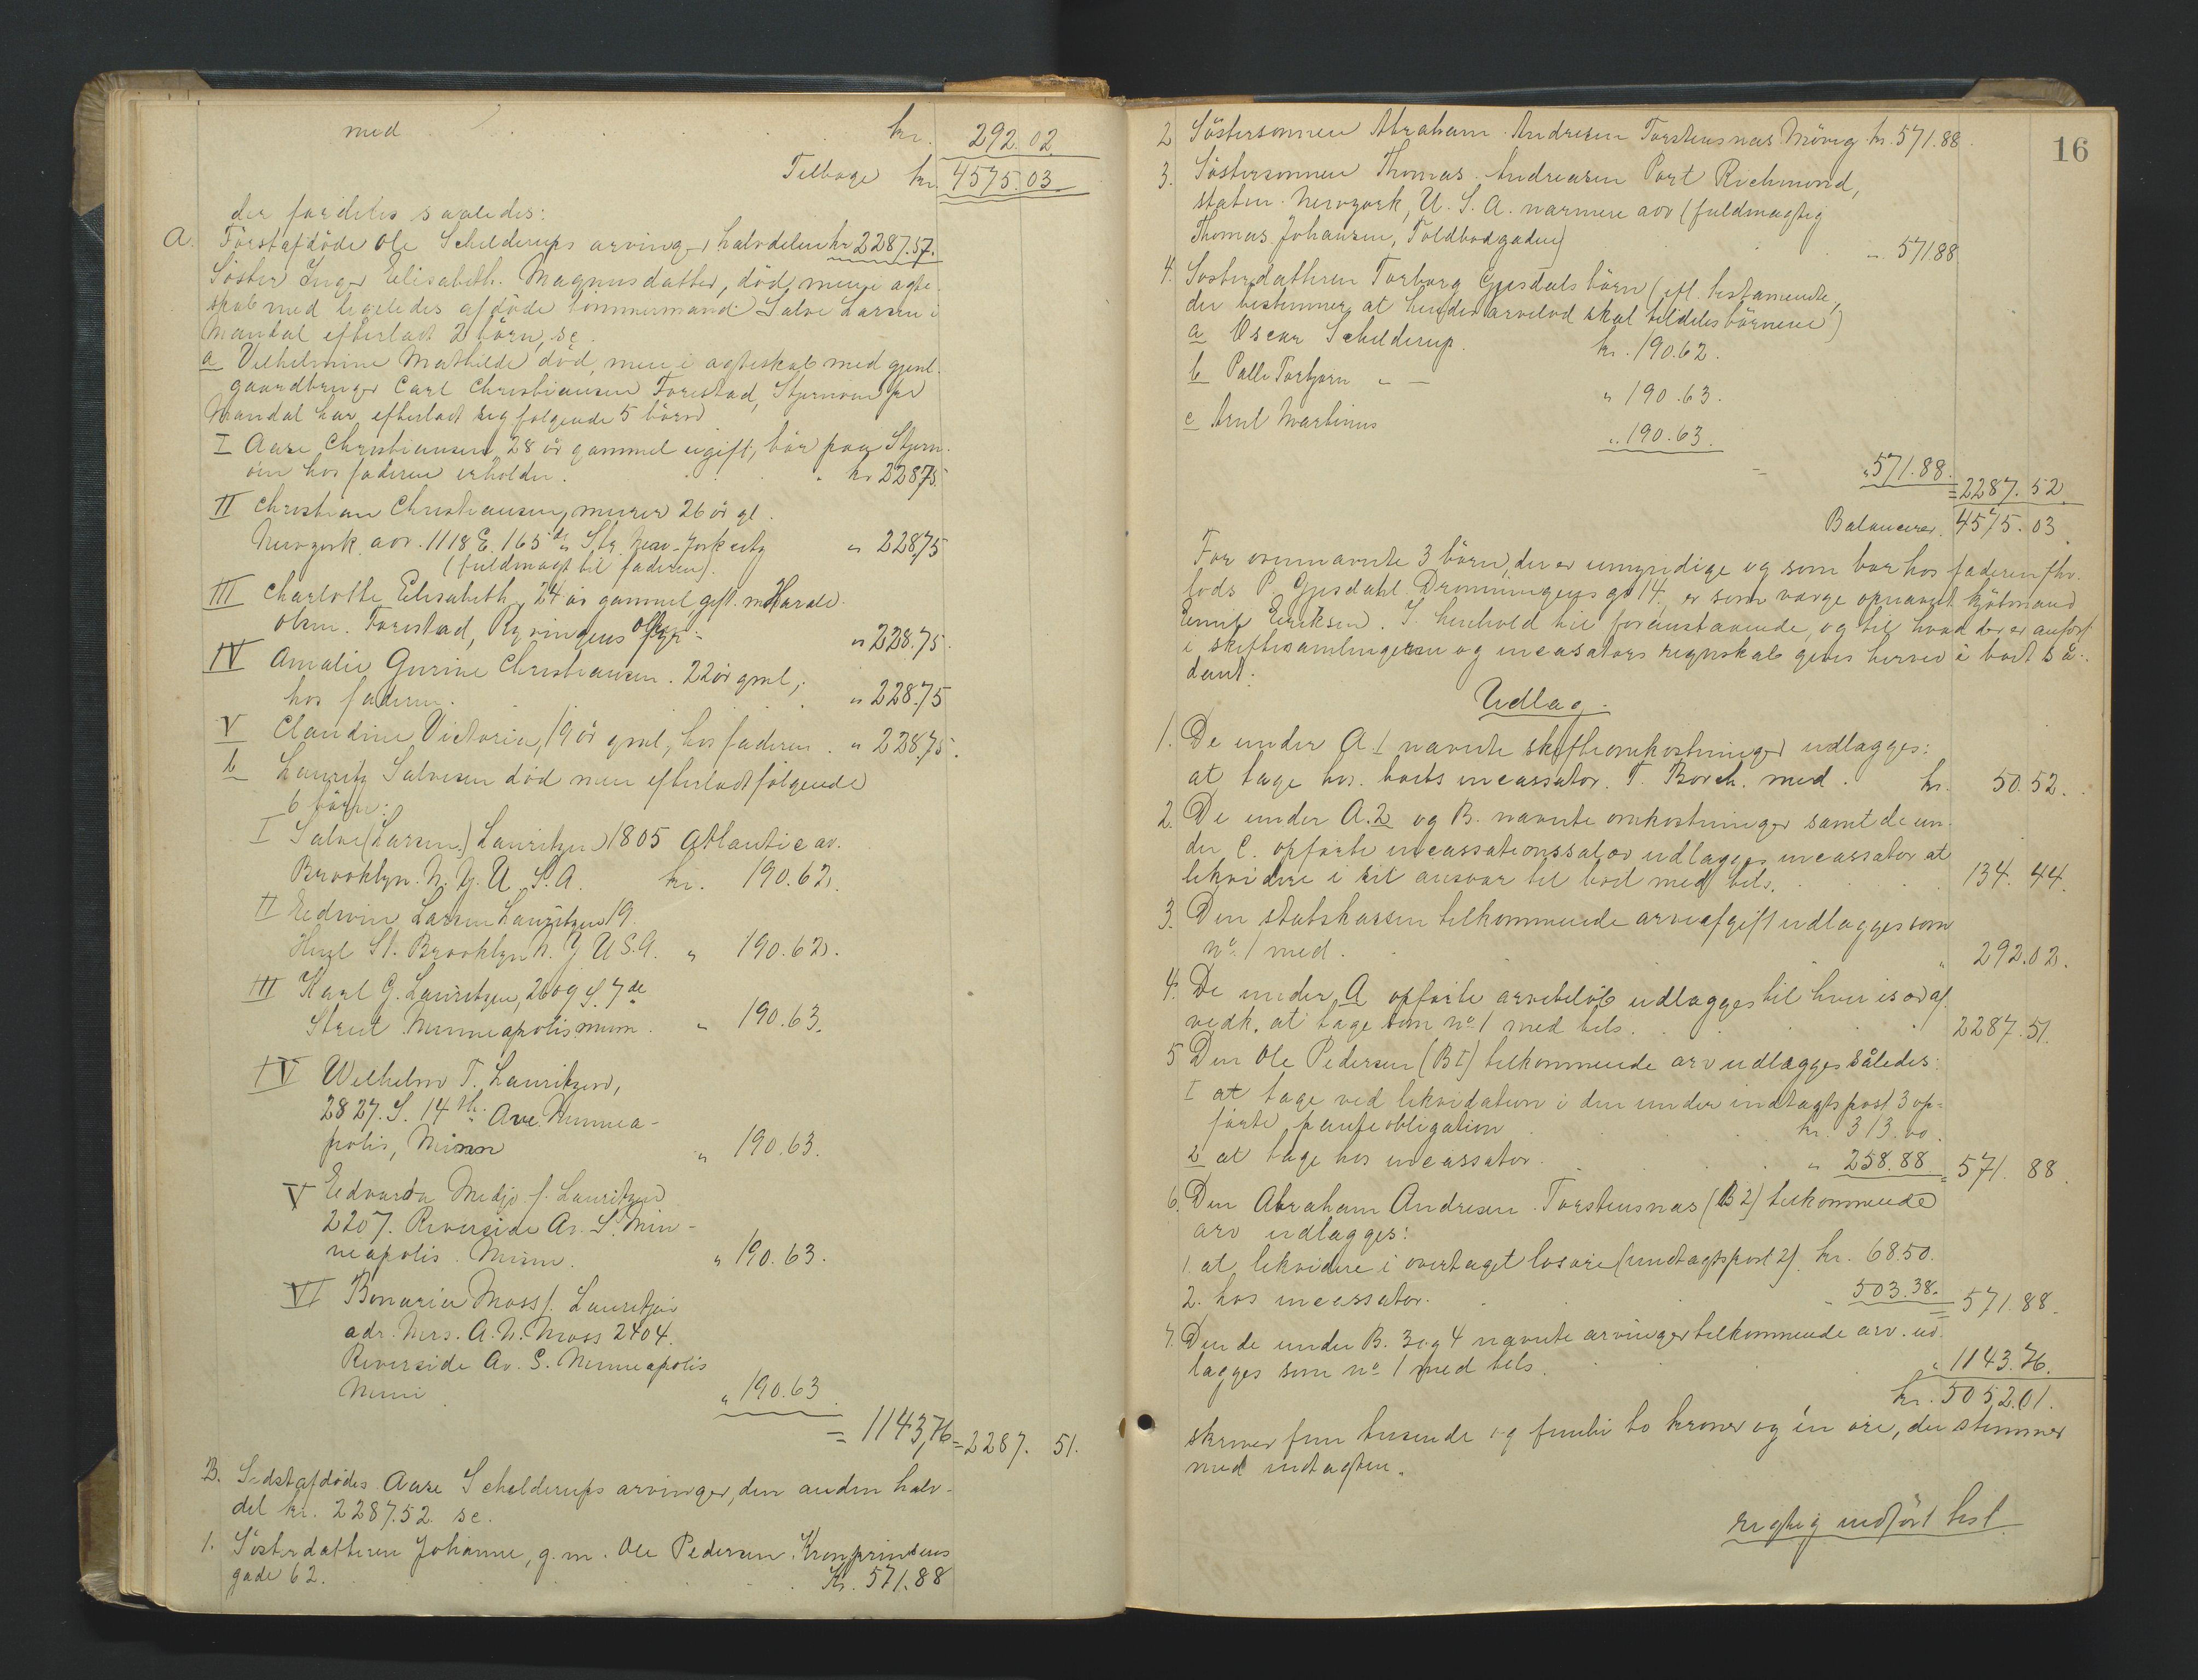 med kr. 292.02.
Tilbage kr. 4575.03
der fordeles saaledes:
A. Förstafdöde Ole Schelderups arvinger halvdelen kr 2287.57.
Söster Inger Elisabeth Magnusdatter, död, men i ægte-
skab med ligeledes afdöde tömmermand Salve Larsen i
Mandal efterladt 2 börn, sc.
a Vilhelmine Mathilde död, men i ægteskab med gjenl.
gaardbruger Carl Christiansen Forestad, Stjernöen pr
Mandal har efterladt sig følgende 5 börn
I Aase Christiansen, 28 år gammel ugift, bor paa Stjern-
öen hos faderen erholder. kr 228.75.
II Christian Christiansen, murer 26 år gl.
Newyork adr. 1118 E. 165 de Str. New-York city " 228.75
(fuldmagt til faderen).
III Charlotte Elisabeth, 24 år gammel, gift m Harald
Olsen. Forestad, Ryvingens " 228.75.
IV Amalie Gurine Christiansen. 22 år gml,
hos faderen. " 228.75
V Claudine Victoria, 19 år gml, hos faderen. " 228.75.
b Lauritz Salvesen död men efterladt følgende
6 börn:
I Salve (Larsen) Lauritzen 1805 Atlantic av.
Brooklyn. N. Y. U. S. A. kr. 190.62.
II Eedwin Larsen Lauritzen 19.
St. Brooklyn N. Y U.S.A. " 190.62.
III Karl G. Lauritzen, 2609 S. 7 de
Street Minneapolis minn. " 190.63.
IV Wilhelm T. Lauritzen,
2827. S. 14 th Ave Minnea-
polis, Minn " 190.63.
V Eedvarda Medjo f. Lauritzen
2207. Riverside Av. S. Min-
neapolis. Minn. " 190.63.
VI Bonaria Moss f. Lauritzen
adr. Mrs. A. N. Moss 2404.
Riverside Av. S. Minneapolis
Minn. " 190.63.
= 1143,76 = 2287. 51.
B. Sidstafdödes Aase Schelderups arvinger, den anden halv-
del kr. 2287.52. sc.
1. Sösterdatteren Johanne, g. m. Ole Pedersen. Kronprindsens
gade 62. Kr. 571.88
16
2 Söstersonnen Abraham Andresen Torstensnæs Mövig kr. 571.88.
3. Söstersonnen Thomas Andreasen Port Richmond,
staten Newyork, U. S. A. nærmere adr (fuldmægtig
Thomas Johansen, Toldbodgaden) - 571.88
4. Sösterdatteren Torborg Gjesdals börn (efl. testamente,
der bestemmer at hendes arvelod skal tildeles börnene)
a Oscar Schelderup. kr. 190.62.
b Palle Torbjorn " — " 190.63.
c Arnt Martinus " 190.63.
— " 571.88. = 2287. 52.
Balancerer. 4575. 03.
For ovennævnte 3 börn, der er umyndige og som bor hos faderen fhv.
lods P. Gjesdahl Dronningens gd 14. er som værge opnævnt kjöbmand
Eriksen. I henhold til foranstaaende, og til hvad der er anfört
i skiftesamlingerne og incasators regnskab gives herved i bodt så-
dant.
Udlæg.
1. De under A 1 nævnte skifteomkostninger udlægges:
at tage hos boets incassator. T. Borch. med. kr. 50.52.
2. De under A.2 og B. nævnte omkostninger samt de un-
der C. opförte incassationssalær udlægges incassator at
likvidere i sit ansvar til boet med tils. 134. 44.
3. Den statskassen tilkommende arveafgift udlægges som
no 1 med. " 292.02.
4. De under A opförte arvebeløb udlægges til hver især af
vedk. at tage som no 1 med tils. " 2287.51.
5 Den Ole Pedersen (B1) tilkommende arv udlægges således:
1 at tage ved likvidation i den under indtægtspost 3 op-
förte panteobligation kr. 313.00.
2 at tage hos incassator. " 258.88 = 571. 88.
6. Den Abraham Andresen Torstensnæs (B 2) tilkommende
arv udlægges:
1. at likvidere i overtaget løsøre (indtægtspost 2). kr. 68.50.
2. hos incassator. " 503.38. = 571.88.
7. Den de under B. 3 og 4 nævnte arvinger tilkommende arv. ud-
lægges som no 1 med tils. " 1143.76.
kr. 5052.01.
skriver fem tusende og femti to kroner og én öre, der stemmer
med indtægten.
rigtig indfört test